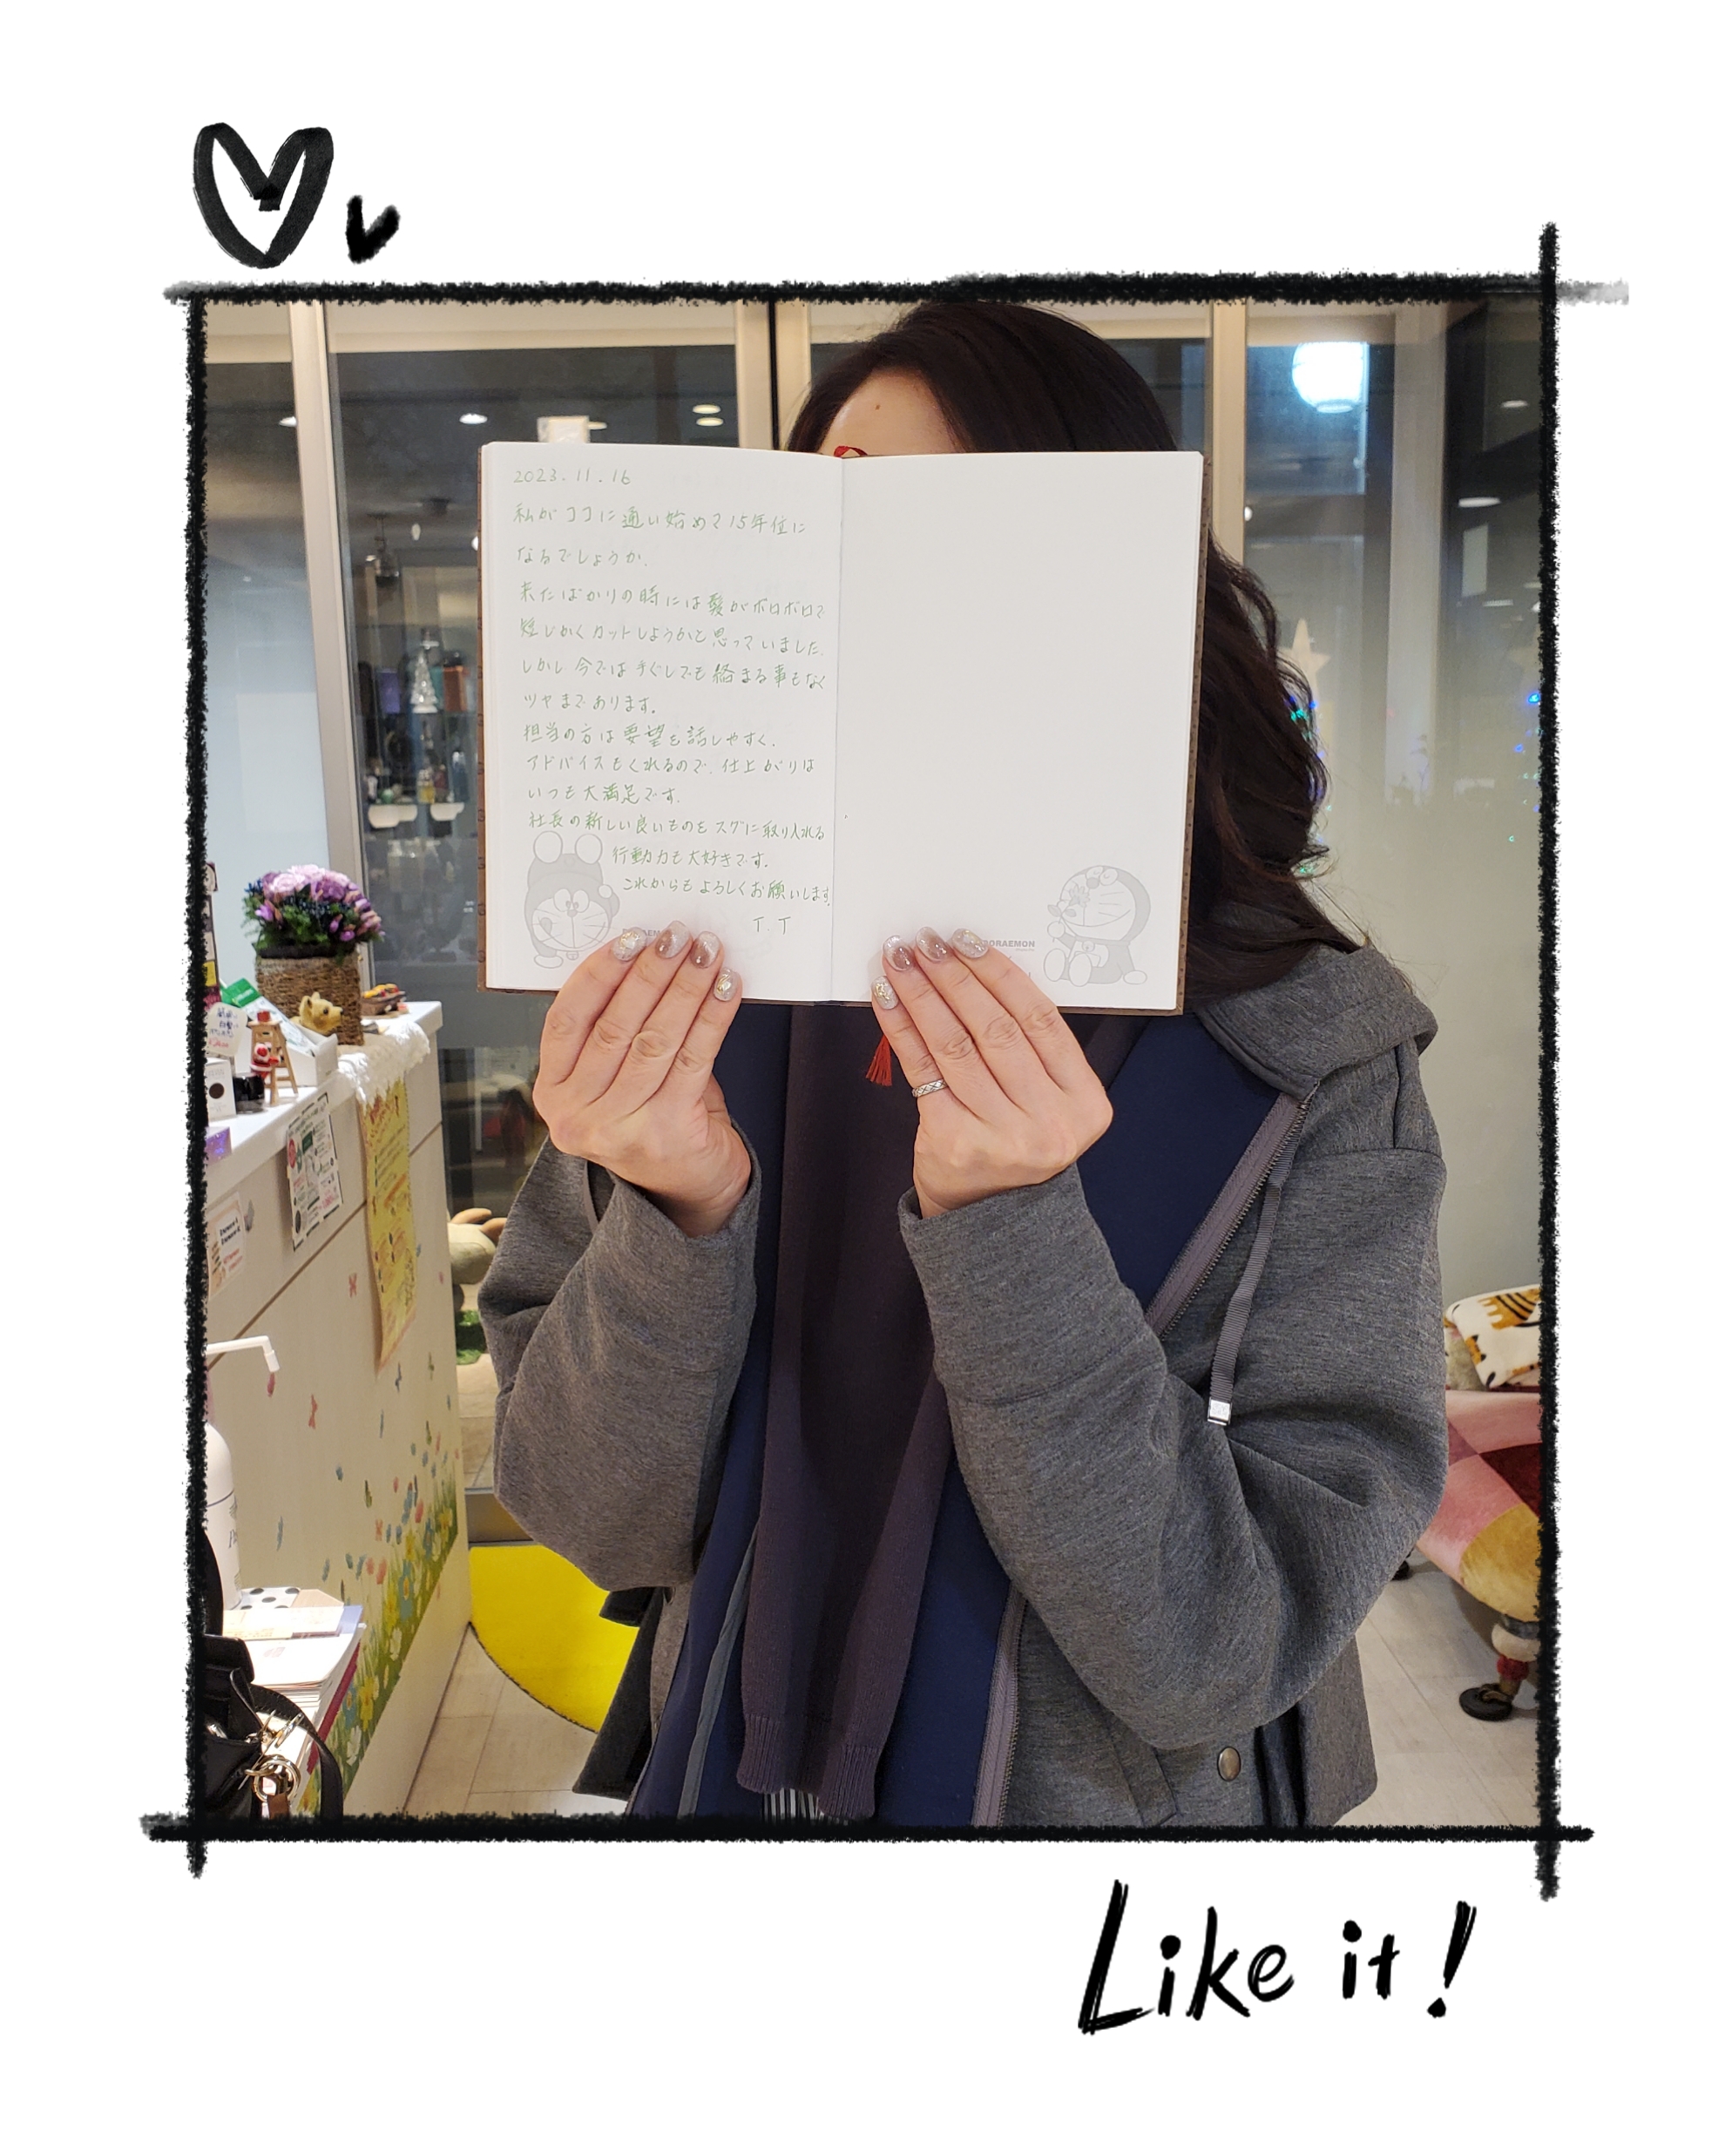 2023.11.16
私がココに通い始めて15年位に
なるでしょうか.
来たばかりの時には髪がボロボロで
短じかくカットしようかと思っていました.
しかし今では手ぐしでも絡まる事もなく
ツヤまであります。
担当の方は要望を話しやすく.
アドバイスもくれるので.仕上がりは
いつも大満足です.
社長の新しい良いものをスグに取り入れる
行動力も大好きです。
これからもよろしくお願いします.
T.T
DORAEMON
Like it!